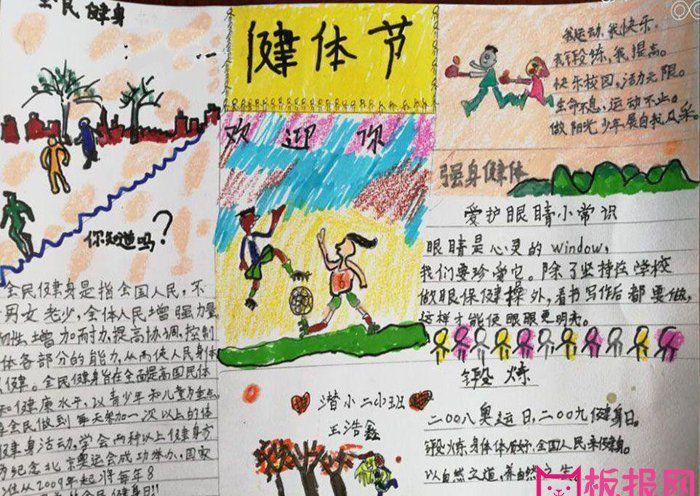 全民健身
你知道吗?
全民健身是指全国人民,不
男女老少,全体人民增强力量
韧性,增加耐力,提高协调,控制
体各部分的能力,从而使人民身体
健。全民健身旨在全面提高国民体
和健康水平,以青少年和儿童为重点
全民做到每天参加一次以上的体
健身活动,学会两种以上健身方
为纪念北京奥运会成功举办,国家
从2009年起,将每年8
全民健身日!!
健体节
欢迎你
潜小二小班
王浩鑫
我运动,我快乐。
去锻炼,我提高。
快乐校园,活动无限。
生命不息,运动不止。
做阳光少年展自我风采。
强身健体
爱护眼睛小常识
眼睛是心灵的window,
我们要珍爱它。除了坚持在学校
做眼保健操外,看书写作后都要做,
这样才能使眼睛更明亮。
锻炼
二00八奥运日,二00九健身日。
锻炼身体体质好,全国人民来健身。
以自然之道,养自然之生。
板报网